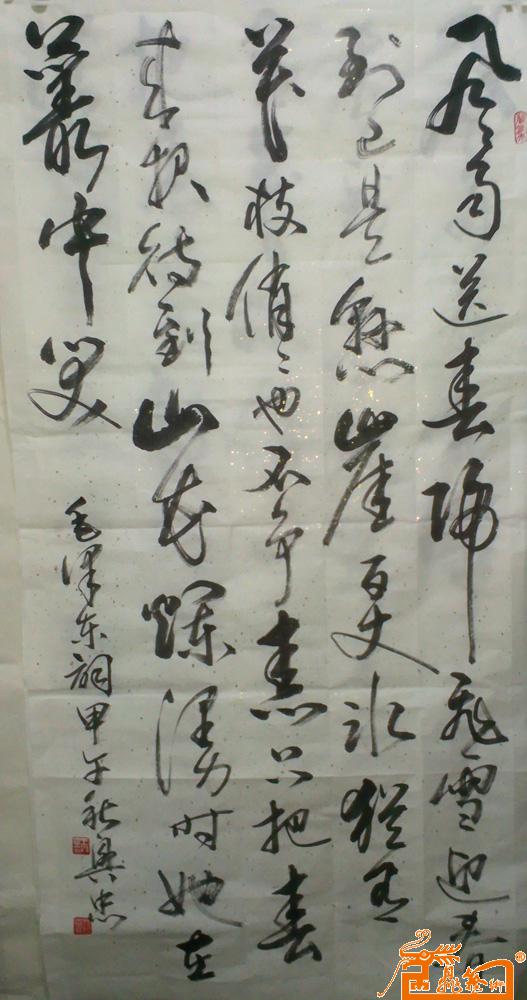 风雨送春归飛雪迎春
到已是懸崖百丈冰猶有
花枝俏〻也不争春只把春
来报待到山花爛漫时她在
叢中笑
毛泽东詞甲午秋興忠